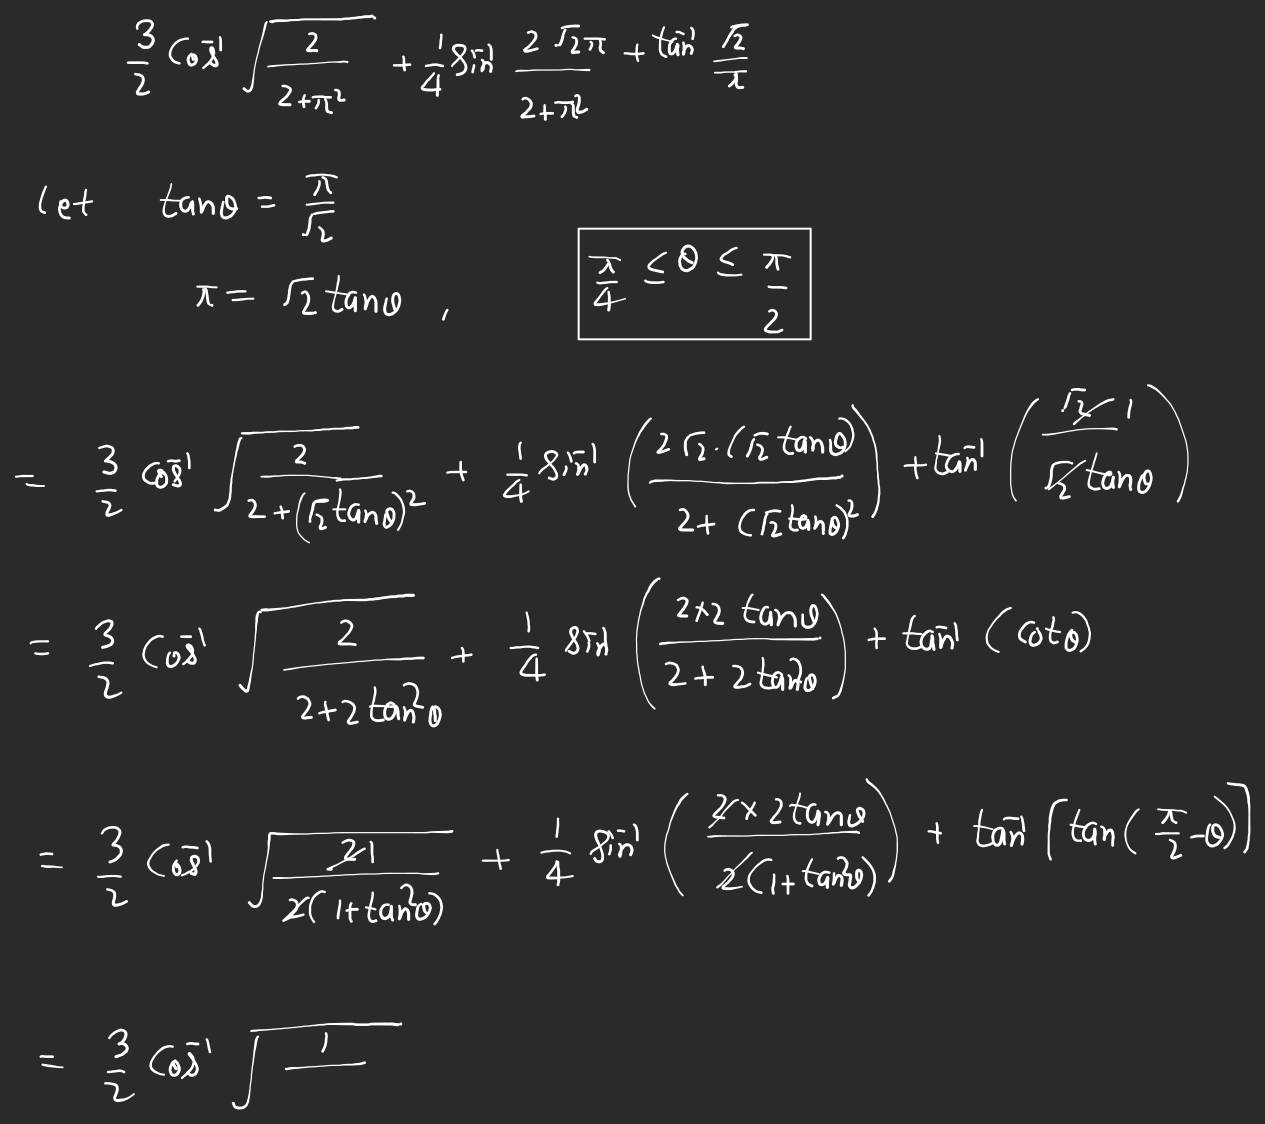 3/2 cos⁻¹ √(2/(2+π²)) + 1/4 sin⁻¹ 2√2π/(2+π²) + tan⁻¹ √2/π
let tanθ = π/√2
π = √2 tanθ ,
π/4 ≤ θ ≤ π/2
= 3/2 cos⁻¹ √(2/(2+(√2tanθ)²)) + 1/4 sin⁻¹ (2√2.(√2 tanθ)/(2+ (√2tanθ)²)) + tan⁻¹ (√2 1/(√2 tanθ))
= 3/2 cos⁻¹ √(2/(2+2tan²θ)) + 1/4 sin⁻¹ (2×2 tanθ/(2+2tan²θ)) + tan⁻¹ (cotθ)
= 3/2 cos⁻¹ √(2 1/(2(1+tan²θ))) + 1/4 sin⁻¹ (2×2tanθ/(2(1+tan²θ))) + tan⁻¹ [tan(π/2-θ)]
= 3/2 cos⁻¹ √(1/